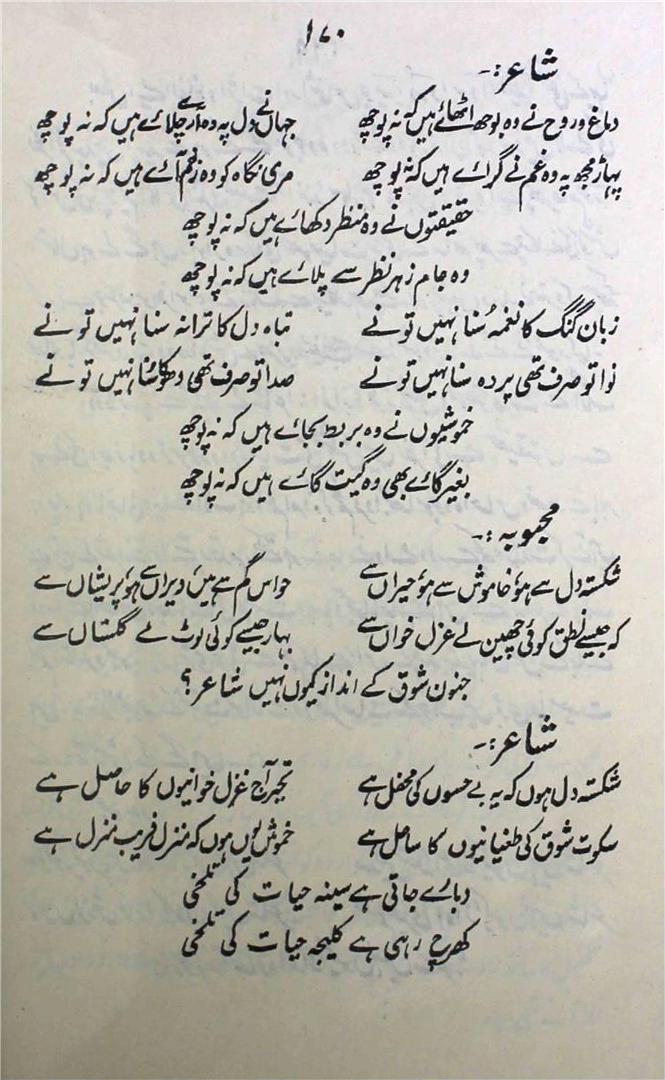 ۱۷۰
شاعر:۔
دماغ و روح نے وہ بوجھ اٹھائے ہیں کہ نہ پوچھ جہانِ دل پہ وہ آرے چلائے ہیں کہ نہ پوچھ
پہاڑ مجھ پہ وہ غم نے گرائے ہیں کہ نہ پوچھ مری نگاہ کو وہ زخم آئے ہیں کہ نہ پوچھ
حقیقتوں نے وہ منظر دکھائے ہیں کہ نہ پوچھ
وہ جام زہر نظر سے پلائے ہیں کہ نہ پوچھ
زبان گنگ کا نغمہ سُنا نہیں تو نے تباہ دل کا ترانہ سنا نہیں تو نے
نوا تو صرف تھی پردہ سنا نہیں تو نے صدا تو صرف تھی دھوکا سُنا نہیں تو نے
خموشیوں نے وہ بربط بجائے ہیں کہ نہ پوچھ
بغیر گائے بھی وہ گیت گائے ہیں کہ نہ پوچھ
محبوبہ:۔
شکستہ دل سے ہو، خاموش سے ہو، حیراں سے حواس گم سے ہیں، ویراں سے ہو، پریشاں سے
کہ جیسے نطق کوئی چھین لے غزل خواں سے بہار جیسے کوئی لوٹ لے گلستاں سے
جنون شوق کے انداز کیوں نہیں شاعر؟
شاعر:۔
شکستہ دل ہوں کہ یہ بے حسوں کی محفل ہے تحیر آج غزل خوانیوں کا حاصل ہے
سکوت شوق کی طغیانیوں کا ساحل ہے خموش یوں ہوں کہ منزل فریب منزل ہے
دبائے جاتی ہے سینہ حیات کی تلخی
کھرچ رہی ہے کلیجہ حیات کی تلخی